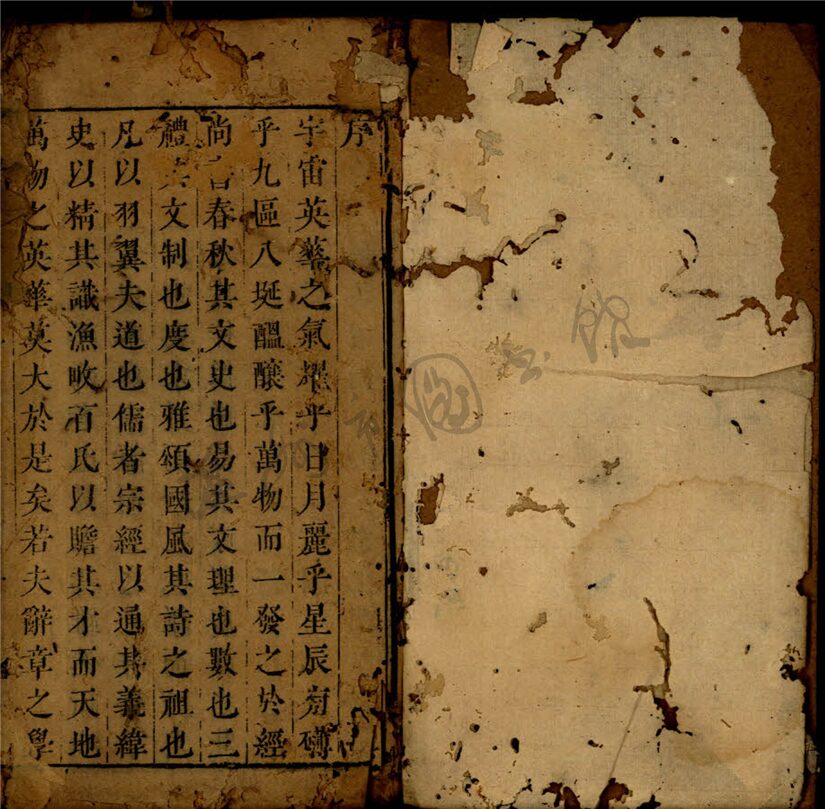 序
宇宙英華之氣耀乎日月麗乎星辰旁礴
乎九區八埏醞釀乎萬物而一發之於經
尚書春秋其文史也易其文理也數也三
禮其文制也度也雅頌國風其詩之祖也
凡以羽翼夫道也儒者宗經以通其義緯
史以精其識漁畋百氏以贍其才而天地
萬物之英華莫大於是矣若夫辭章之學